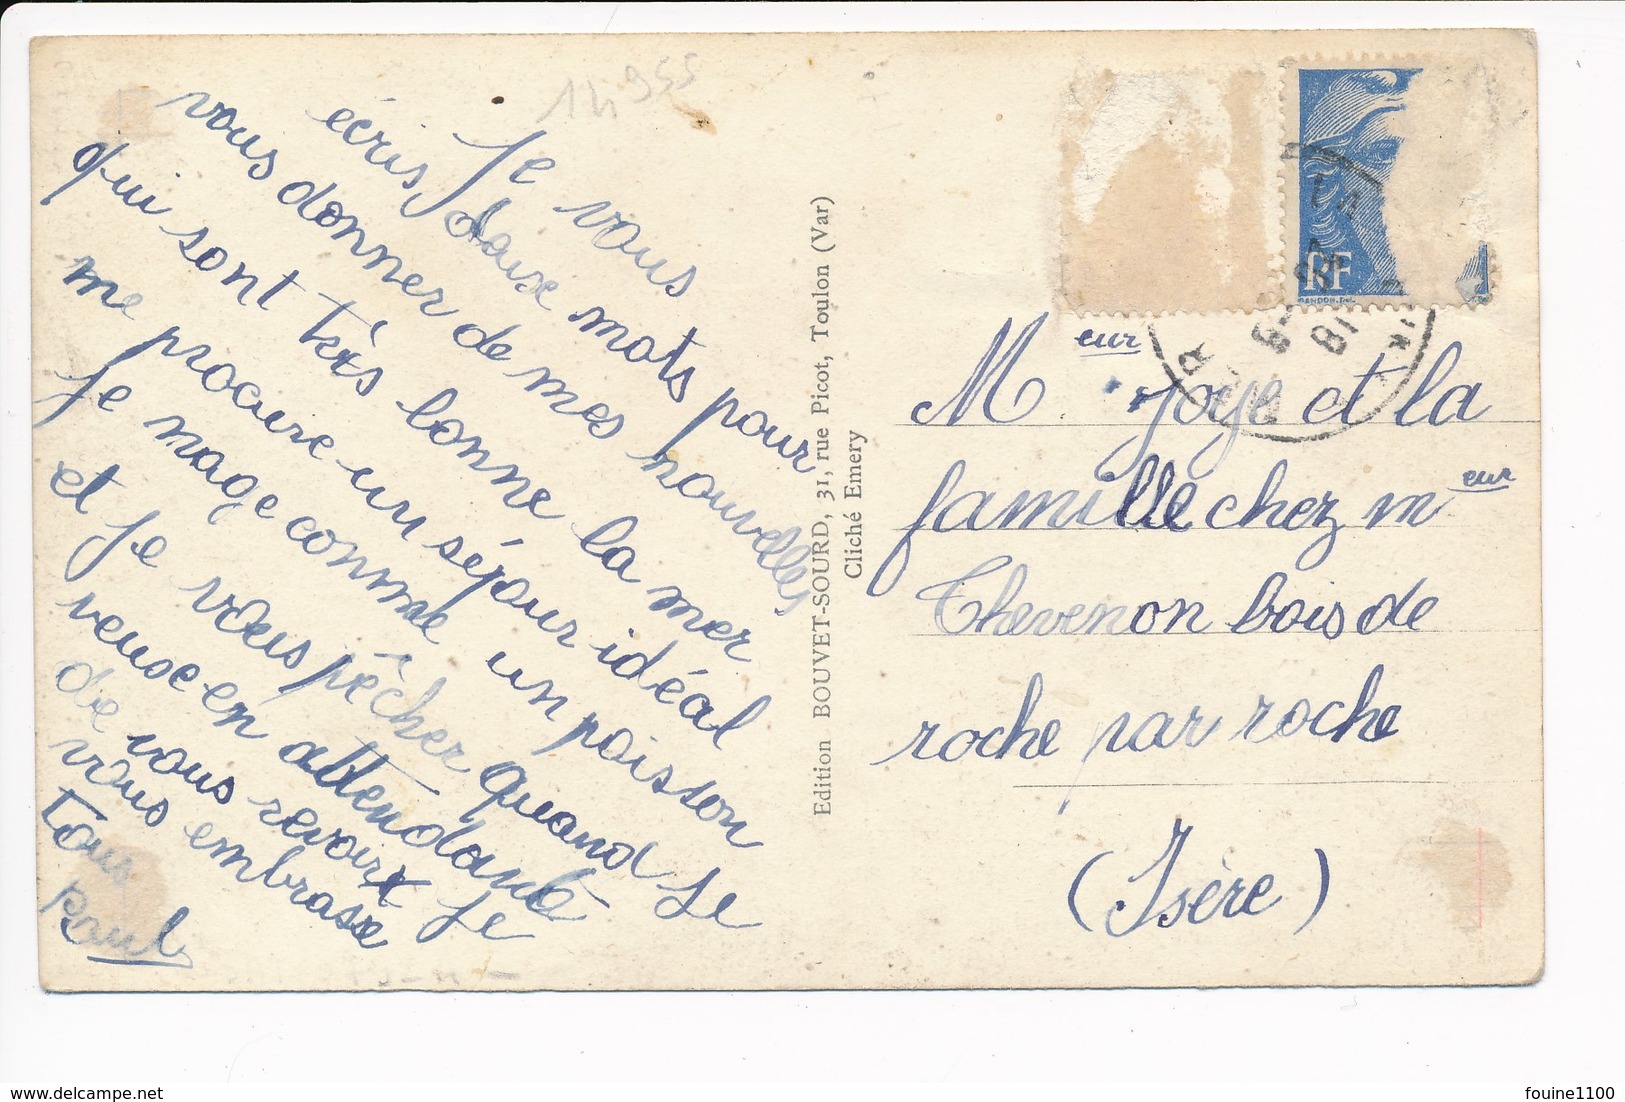 14955
Je vous
écris deuxe mots pour
vous donner de mes nouvelles
qui sont très bonne la mer
me procure un séjour idéal
Je nage comme un poisson
et je vais pêcher quand je
veuse en attendant
de vous revoir je
vous embrasse
tous
Raoul
Edition BOUVET-SOURD, 31, rue Picot, Toulon (Var)
Cliché Emery
RF
GANDON.
LA
18
Meur Joye et la
famille chez meur
Thevenon bois de
roche par roche
(Isère)
fouine1100